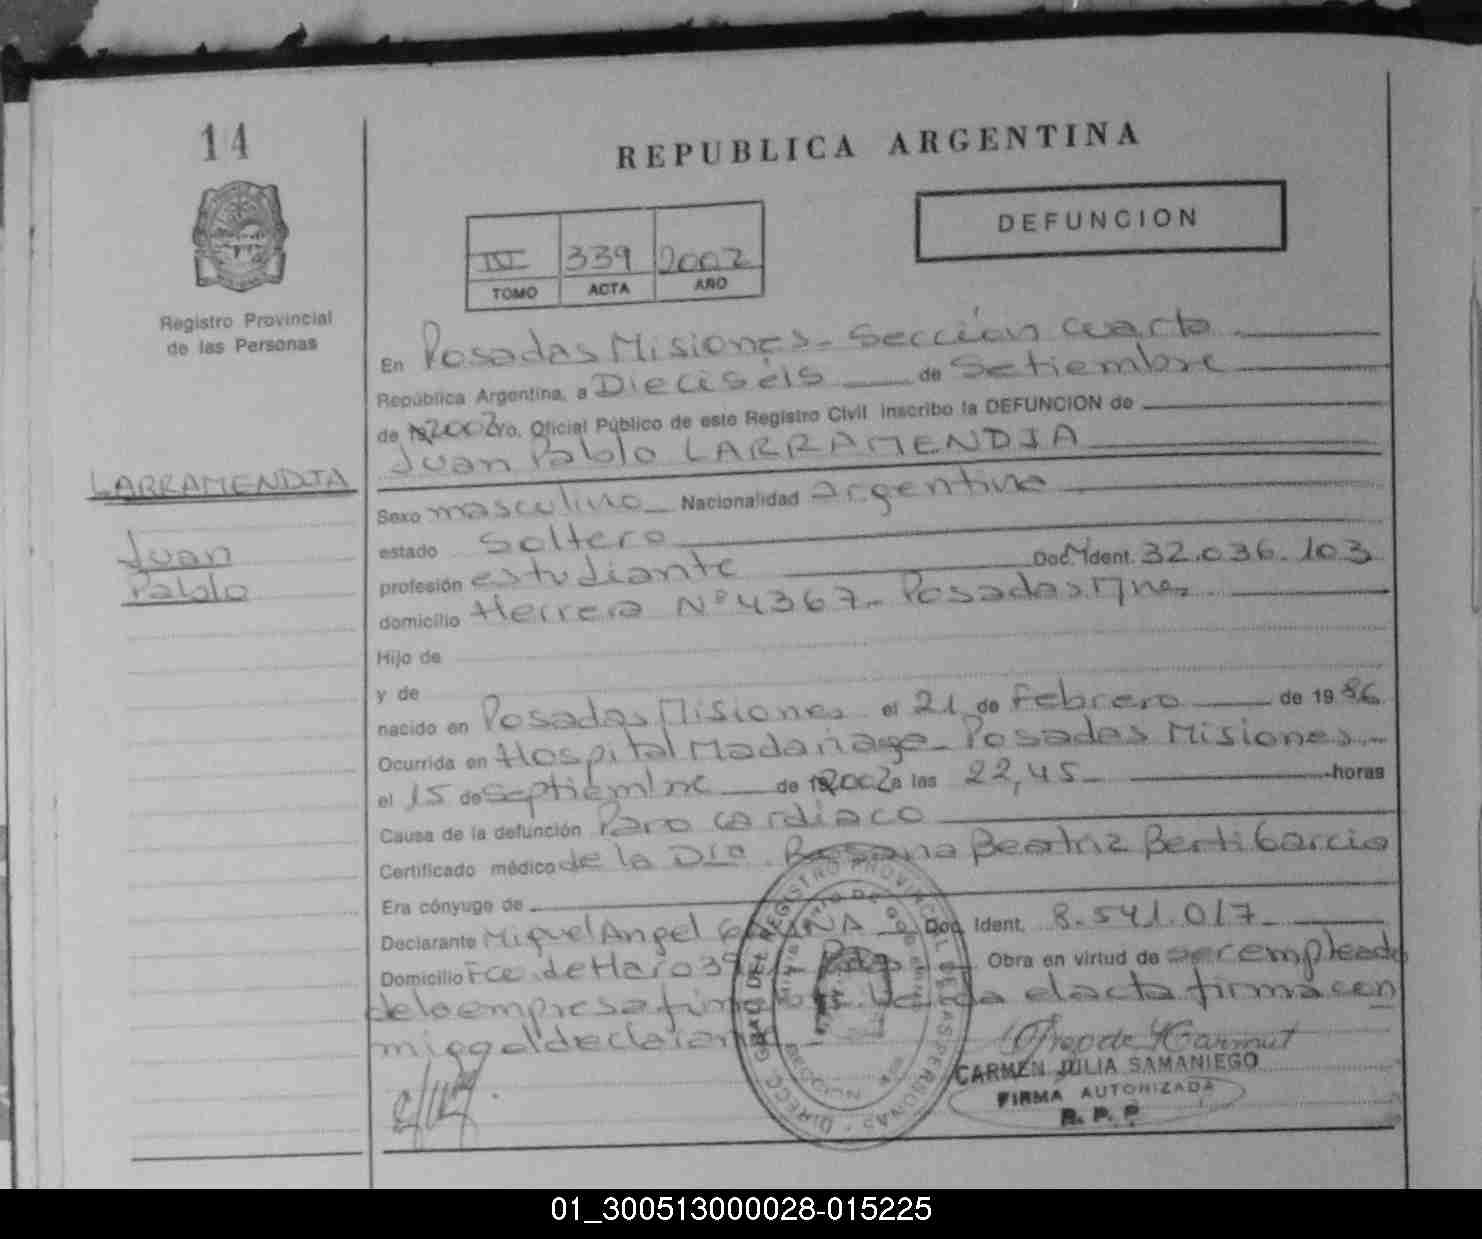 14
REPUBLICA ARGENTINA
DEFUNCION
339 2002
TOMO ACTA AÑO
Registro Provincial
de las Personas
En Posadas Misiones - Sección Cuarta
República Argentina, a Dieciséis de Setiembre
de 2002 yo, Oficial Público de este Registro Civil inscribo la DEFUNCION de
Juan Pablo LARRAMENDIA
LARRAMENDIA
Juan
Pablo
Sexo masculino Nacionalidad argentina
estado Soltero
profesión estudiante Doc. Ident. 32.036.103
domicilio Herrera Nº 4367 - Posadas Mnes
Hijo de
y de
nacido en Posadas Misiones el 21 de Febrero de 1986
Ocurrida en Hospital Madariaga - Posadas Misiones
el 15 de septiembre de 2002 a las 22,45 horas
Causa de la defunción Paro cardiaco
Certificado médico de la Dra. Rossana Beatriz Berti Garcia
Era cónyuge de
Declarante Miguel Angel Doc. Ident. 8.541.017
Domicilio Fco. de Haro Obra en virtud de ser empleado
de la empresa el acta firma con
migo el declarante
DIRECC. GRAL. DEL REGISTRO PROVINCIAL DE LAS PERSONAS
CARMEN JULIA SAMANIEGO
FIRMA AUTORIZADA
R. P. P.
01_300513000028-015225